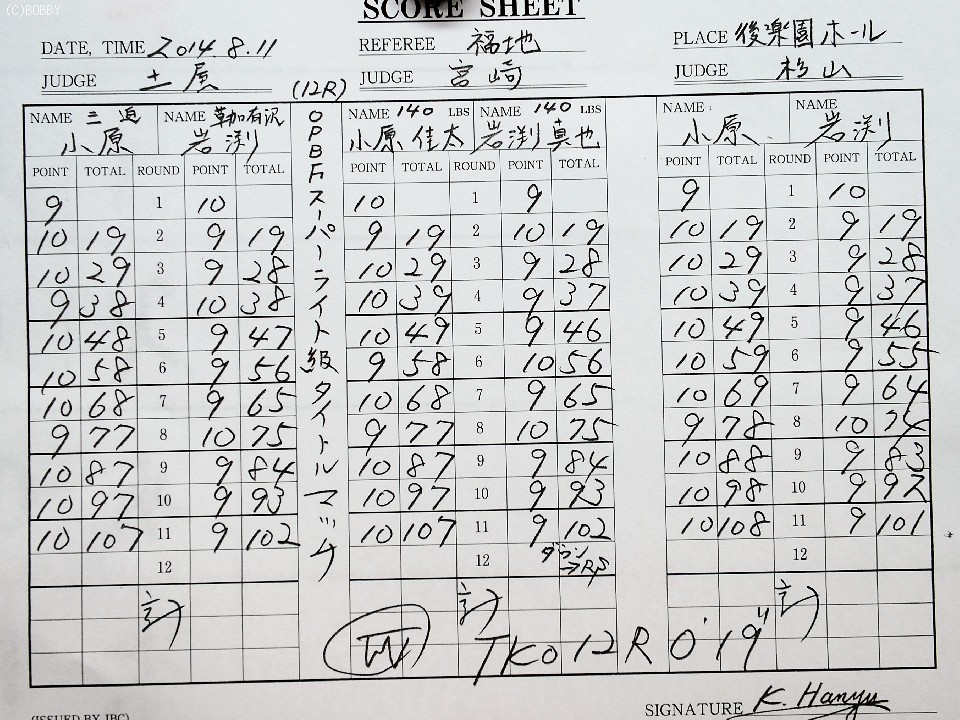 (C)BOBBY
SCORE SHEET
DATE, TIME 2014.8.11 REFEREE 福地 PLACE 後楽園ホール
JUDGE 土屋 (12R) JUDGE 宮崎 JUDGE 杉山
OPBFスーパーライト級タイトルマッチ
NAME 三迫 NAME 草加有沢 NAME 140 LBS NAME 140 LBS NAME NAME
小原 岩渕 小原 佳太 岩渕 真也 小原 岩渕
POINT TOTAL ROUND POINT TOTAL POINT TOTAL ROUND POINT TOTAL POINT TOTAL ROUND POINT TOTAL
9 1 10 10 1 9 9 1 10
10 19 2 9 19 9 19 2 10 19 10 19 2 9 19
10 29 3 9 28 10 29 3 9 28 10 29 3 9 28
9 38 4 10 38 10 39 4 9 37 10 39 4 9 37
10 48 5 9 47 10 49 5 9 46 10 49 5 9 46
10 58 6 9 56 9 58 6 10 56 10 59 6 9 55
10 68 7 9 65 10 68 7 9 65 10 69 7 9 64
9 77 8 10 75 9 77 8 10 75 9 78 8 10 74
10 87 9 9 84 10 87 9 9 84 10 88 9 9 83
10 97 10 9 93 10 97 10 9 93 10 98 10 9 92
10 107 11 9 102 10 107 11 9 102 10 108 11 9 101
12 12 ダウン 12
→RS
計 計 計
W TKO 12R 0'19"
(ISSUED BY JBC) SIGNATURE K. Hanyu